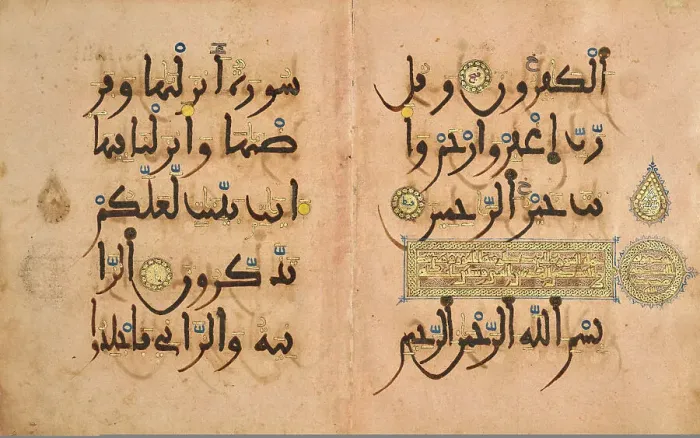 الكفرون وقل
رب اغفر وارحم وا
نت خير الرحمين
بسم الله الرحمن الرحيم
سورة انزلنها وفر
ضنها وانزلنا فيها
ءايت بينت لعلكم
تذكرون الزا
نية والزاني فاجلدوا